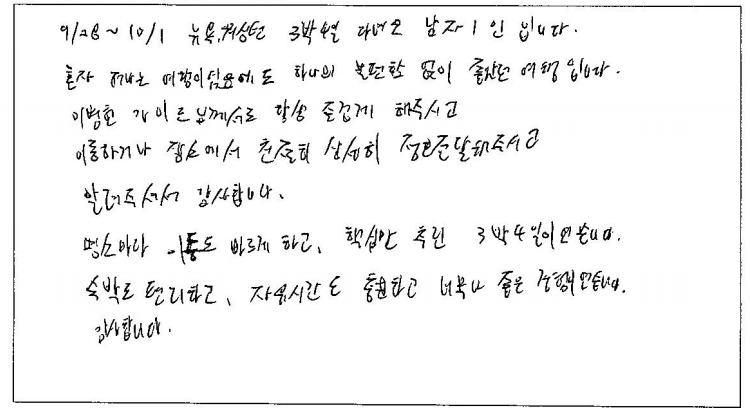 9/28~10/1 뉴욕,워싱턴 3박4일 다녀온 남자1인 입니다.
혼자 떠나는 여행이었음에도 하나의 불편함 없이 즐거운 여행 입니다.
이병헌 가이드님께서도 항상 즐겁게 해주시고
이동하거나 장소에서 친절히 상세히 정보전달해주시고
알려주셔서 감사합니다.
명소마다 이동도 빠르게 하고, 핵심만 추린 3박4일이었습니다.
숙박도 편리하고, 자유시간도 충분하고 너무나 좋은 여행이었습니다.
감사합니다.